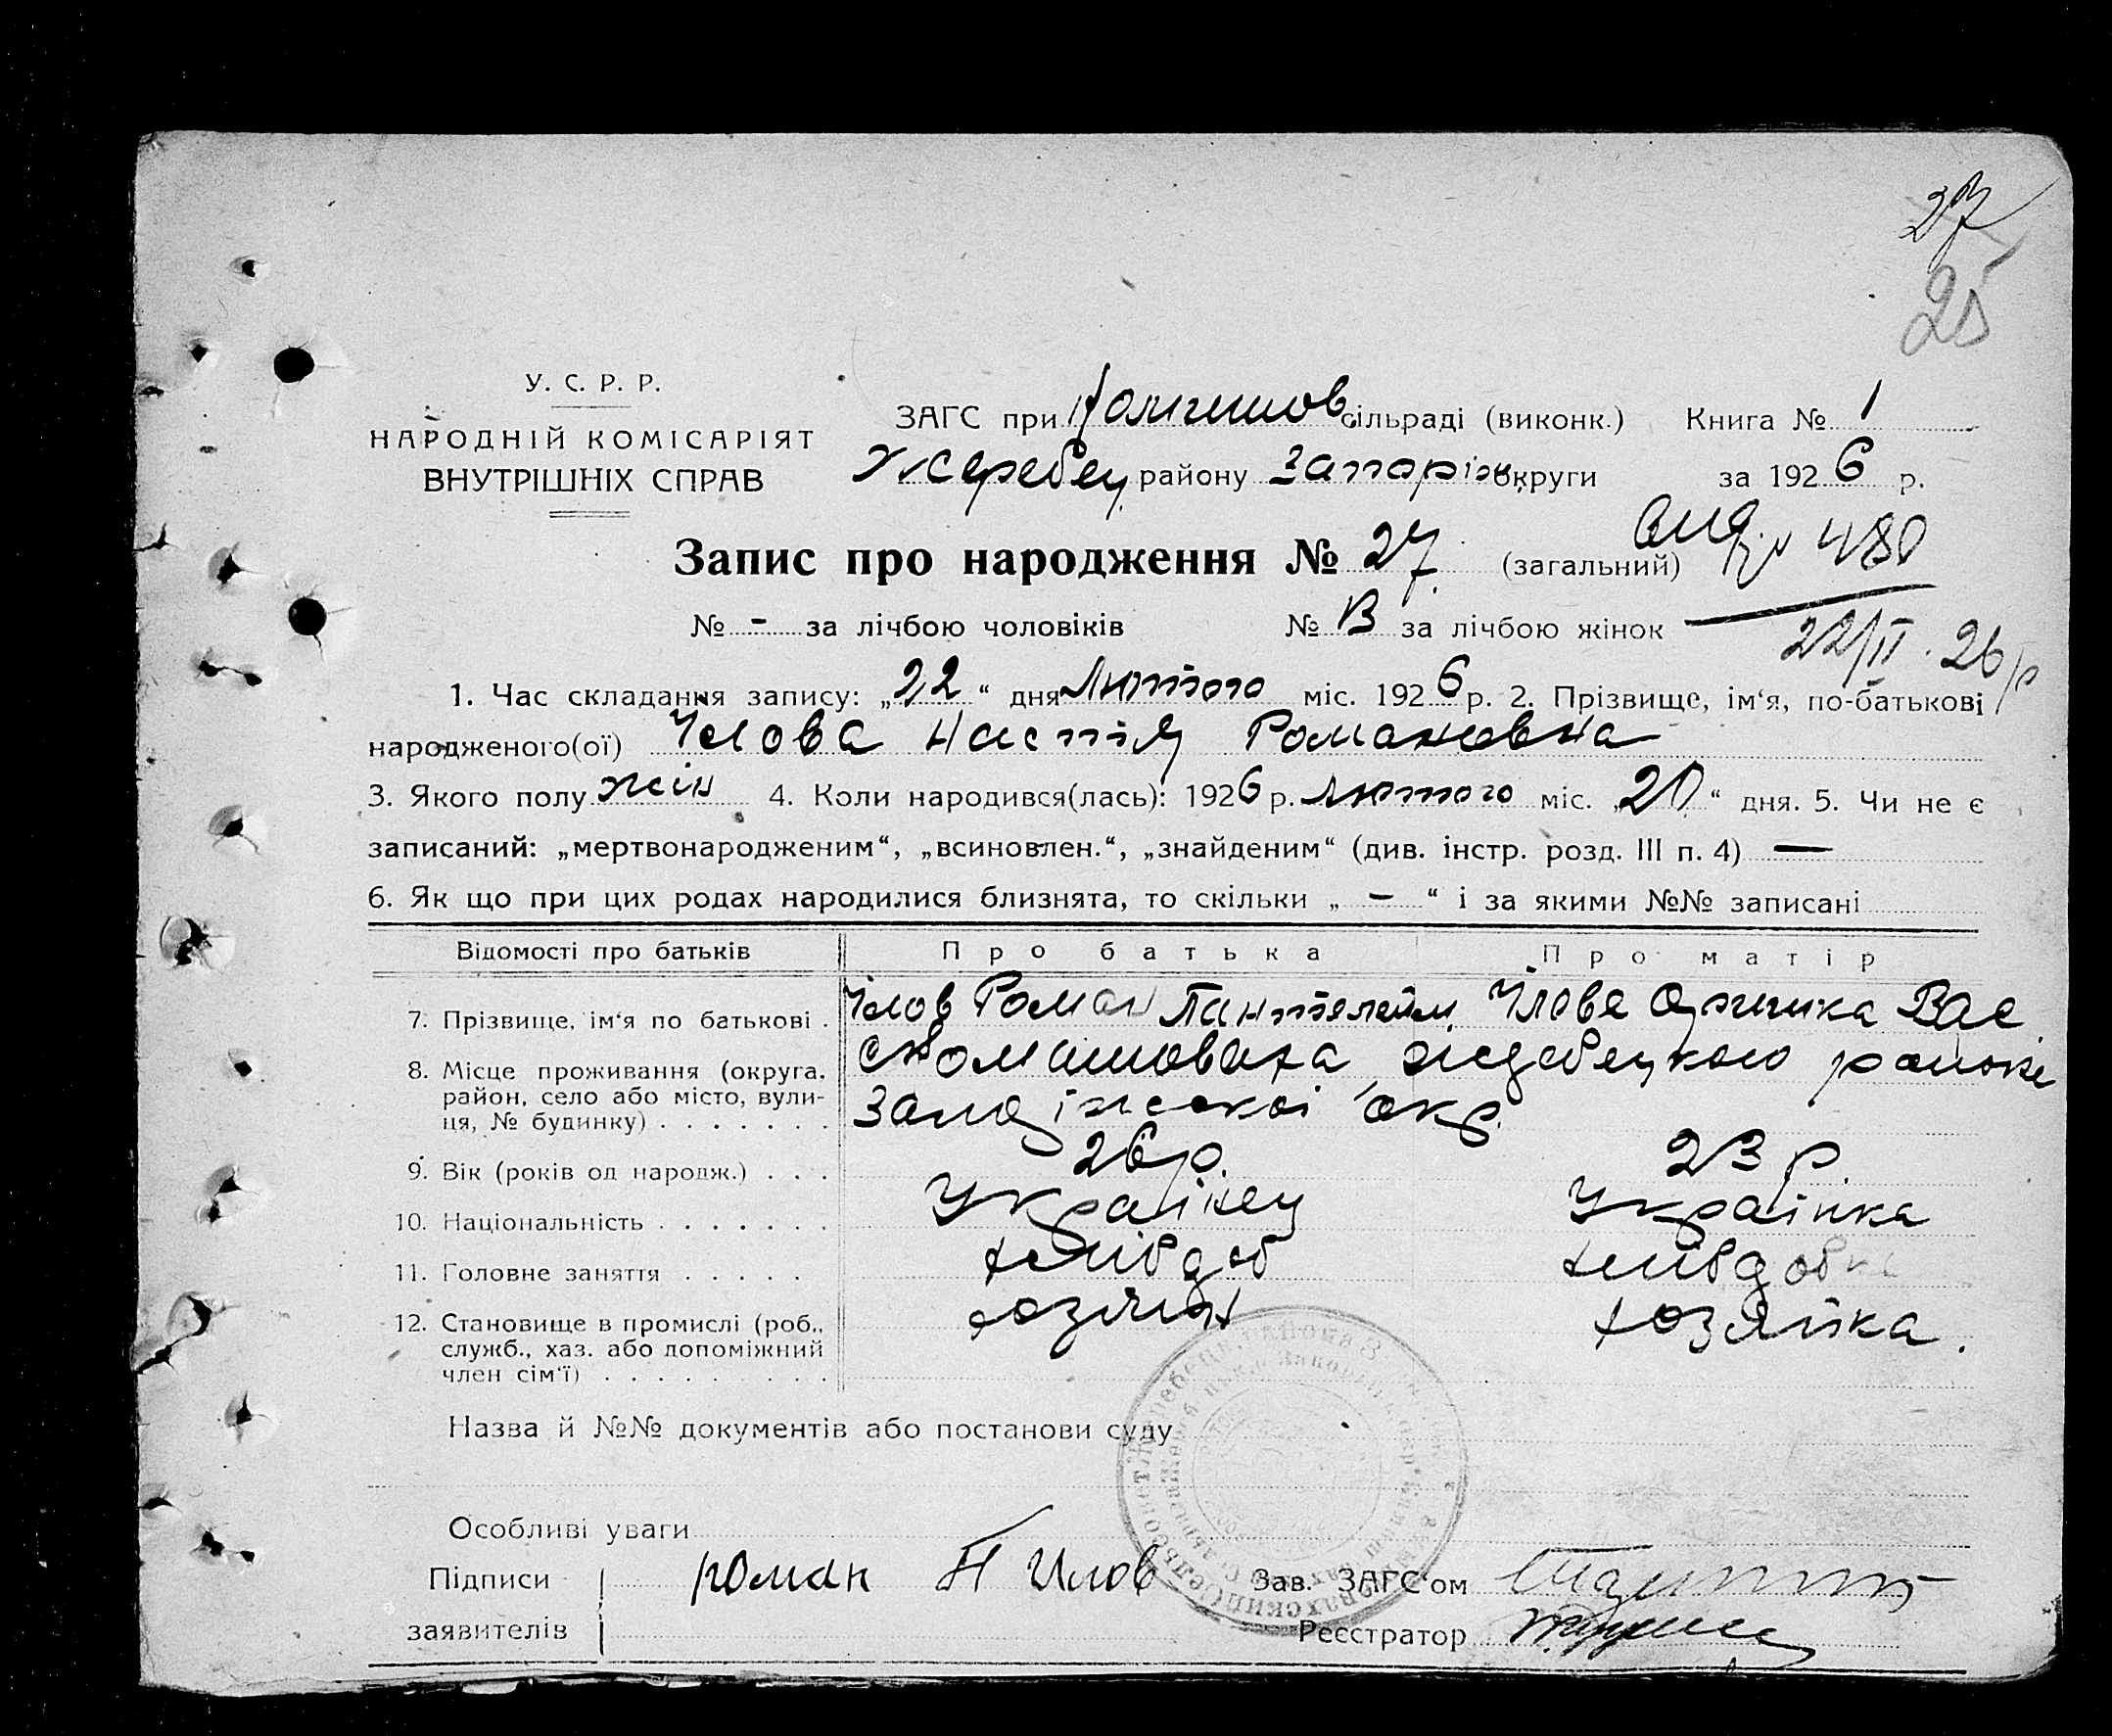 27
25
У. С. Р. Р.
НАРОДНІЙ КОМІСАРІЯТ
ВНУТРІШНІХ СПРАВ
ЗАГС при сільраді (виконк.) Книга № 1
Жеребец. району Запоріз. округи за 1926 р.
Запис про народження № 27. (загальний) 480
№ - за лічбою чоловіків № 13 за лічбою жінок
22/II. 26 р
1. Час складання запису: „22“ дня Лютого міс. 1926 р. 2. Прізвище, ім'я, по-батькові
народженого(ої) Ілова Настія Романовна
3. Якого полу жін 4. Коли народився(лась): 1926 р. лютого міс. „20“ дня. 5. Чи не є
записаний: „мертвонародженим“, „всиновлен.“, „знайденим“ (див. інстр. розд. III п. 4) —
6. Як що при цих родах народилися близнята, то скільки „ — “ і за якими №№ записані
Відомості про батьків Про батька Про матір
7. Прізвище, ім'я по батькові . Ілов Роман Пантелейм. Ілова Вас
8. Місце проживання (округа, район, село або місто, вулиця, № будинку) . . . . . . .
окр.
9. Вік (років од народж.) . . . 26 р. 23 р
10. Національність . . . . . . . Українец Українка
11. Головне заняття . . . . . хлівдоб хлівдобка
12. Становище в промислі (роб., хозяін хозяйка.
служб., хаз. або допоміжний
член сім'ї) . . . . . . . . .
Назва й №№ документів або постанови суду
Особливі уваги
Підписи роман П Илов Зав. ЗАГС'ом
заявителів Реєстратор